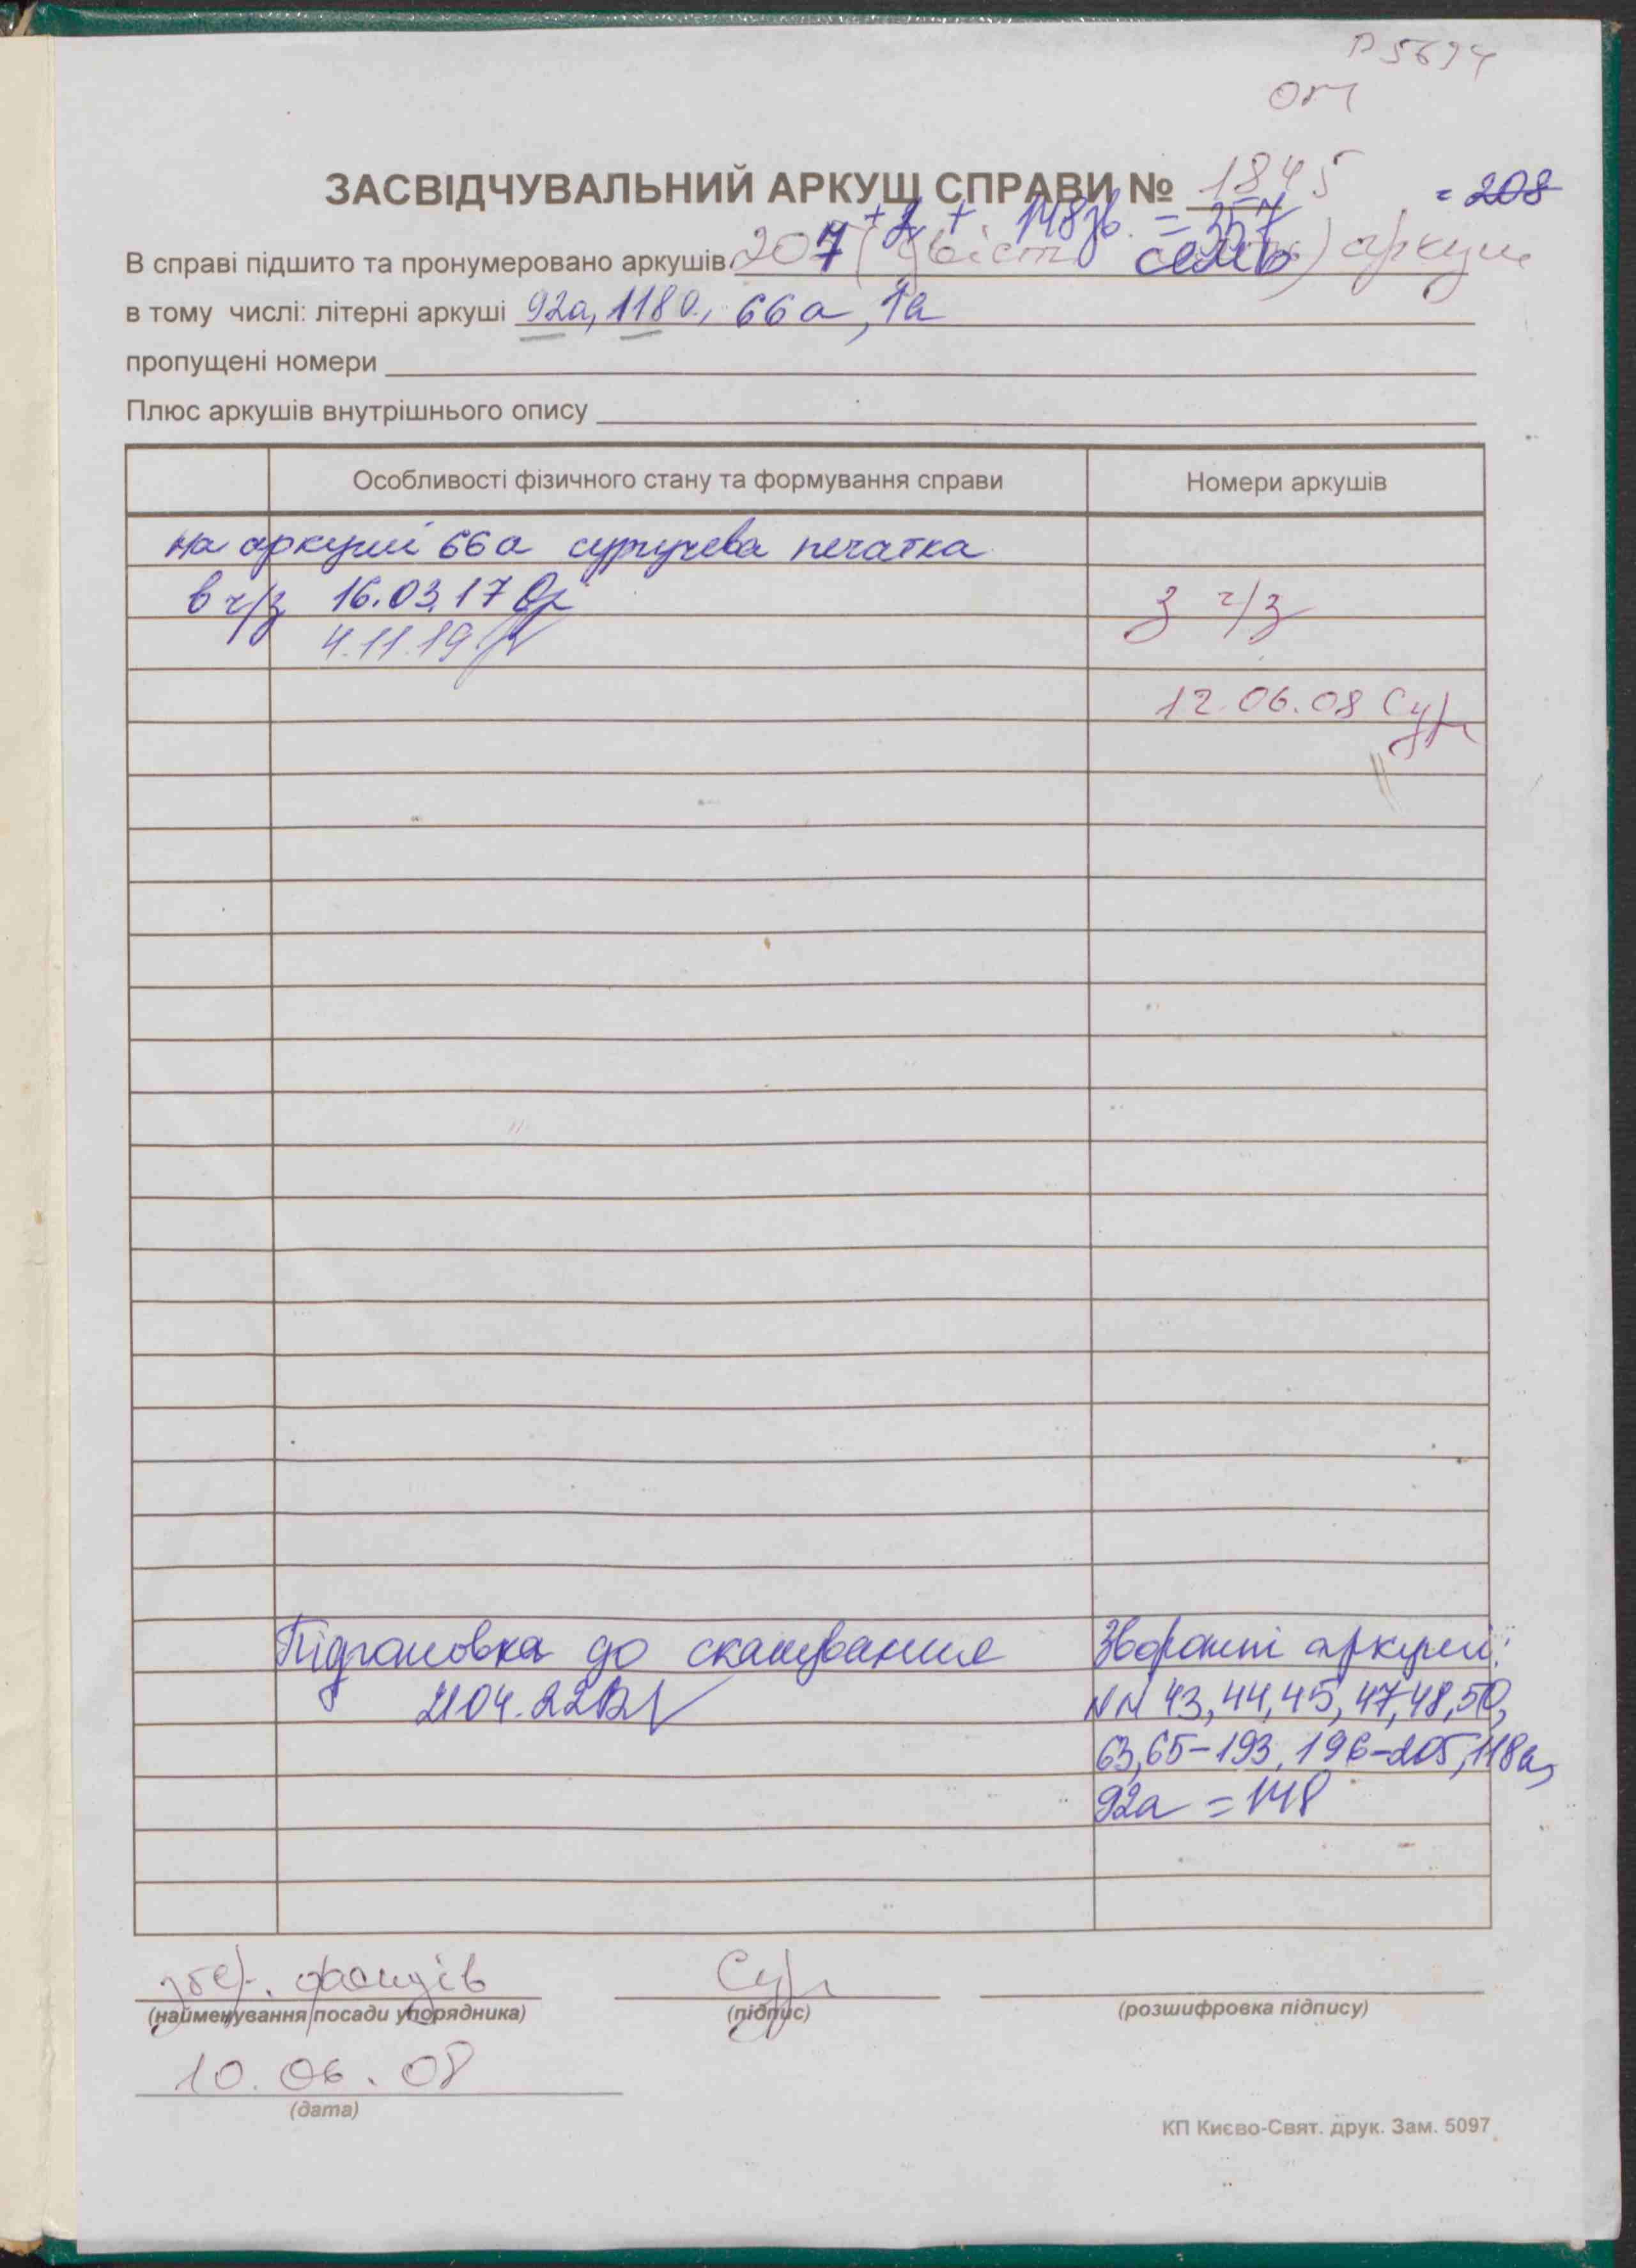 Р 5694
ОМ
ЗАСВІДЧУВАЛЬНИЙ АРКУШ СПРАВИ № 1845
= 208
+ 2 + 148 зв. = 357
В справі підшито та пронумеровано аркушів 207 (двісті семь) аркуш
в тому числі: літерні аркуші 92а, 118а, 66а, 1а
пропущені номери
Плюс аркушів внутрішнього опису
Особливості фізичного стану та формування справи
Номери аркушів
на аркуші 66а сургучева печатка
в ч/з 16.03.17
з ч/з
4.11.19
12.06.08
Підготовка до сканування
Зворотні аркуші:
21.04.22
NN 43, 44, 45, 47, 48, 50,
63, 65-193, 196-205, 118а,
92а = 148
зб. фондів
(найменування посади упорядника)
(підпис)
(розшифровка підпису)
10.06.08
(дата)
КП Києво-Свят. друк. Зам. 5097